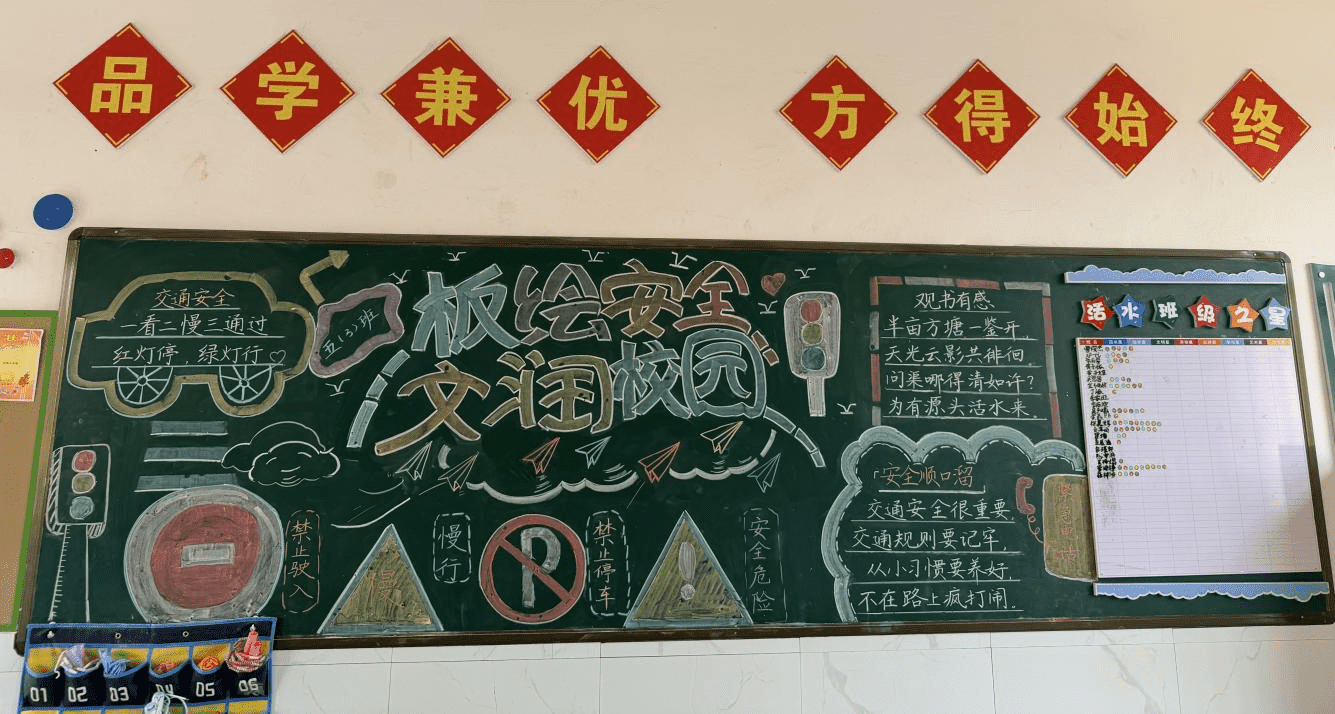 品学兼优 方得始终
交通安全
一看二慢三通过
红灯停,绿灯行
五(3)班
板绘安全
文润校园
观书有感
半亩方塘一鉴开,
天光云影共徘徊.
问渠哪得清如许?
为有源头活水来.
活水班级之星
「安全顺口溜
交通安全很重要.
交通规则要记牢,
从小习惯要养好.
不在路上疯打闹。
禁止驶入
慢
慢行
P
禁止停车
!
安全危险
01 02 03 04 05 06